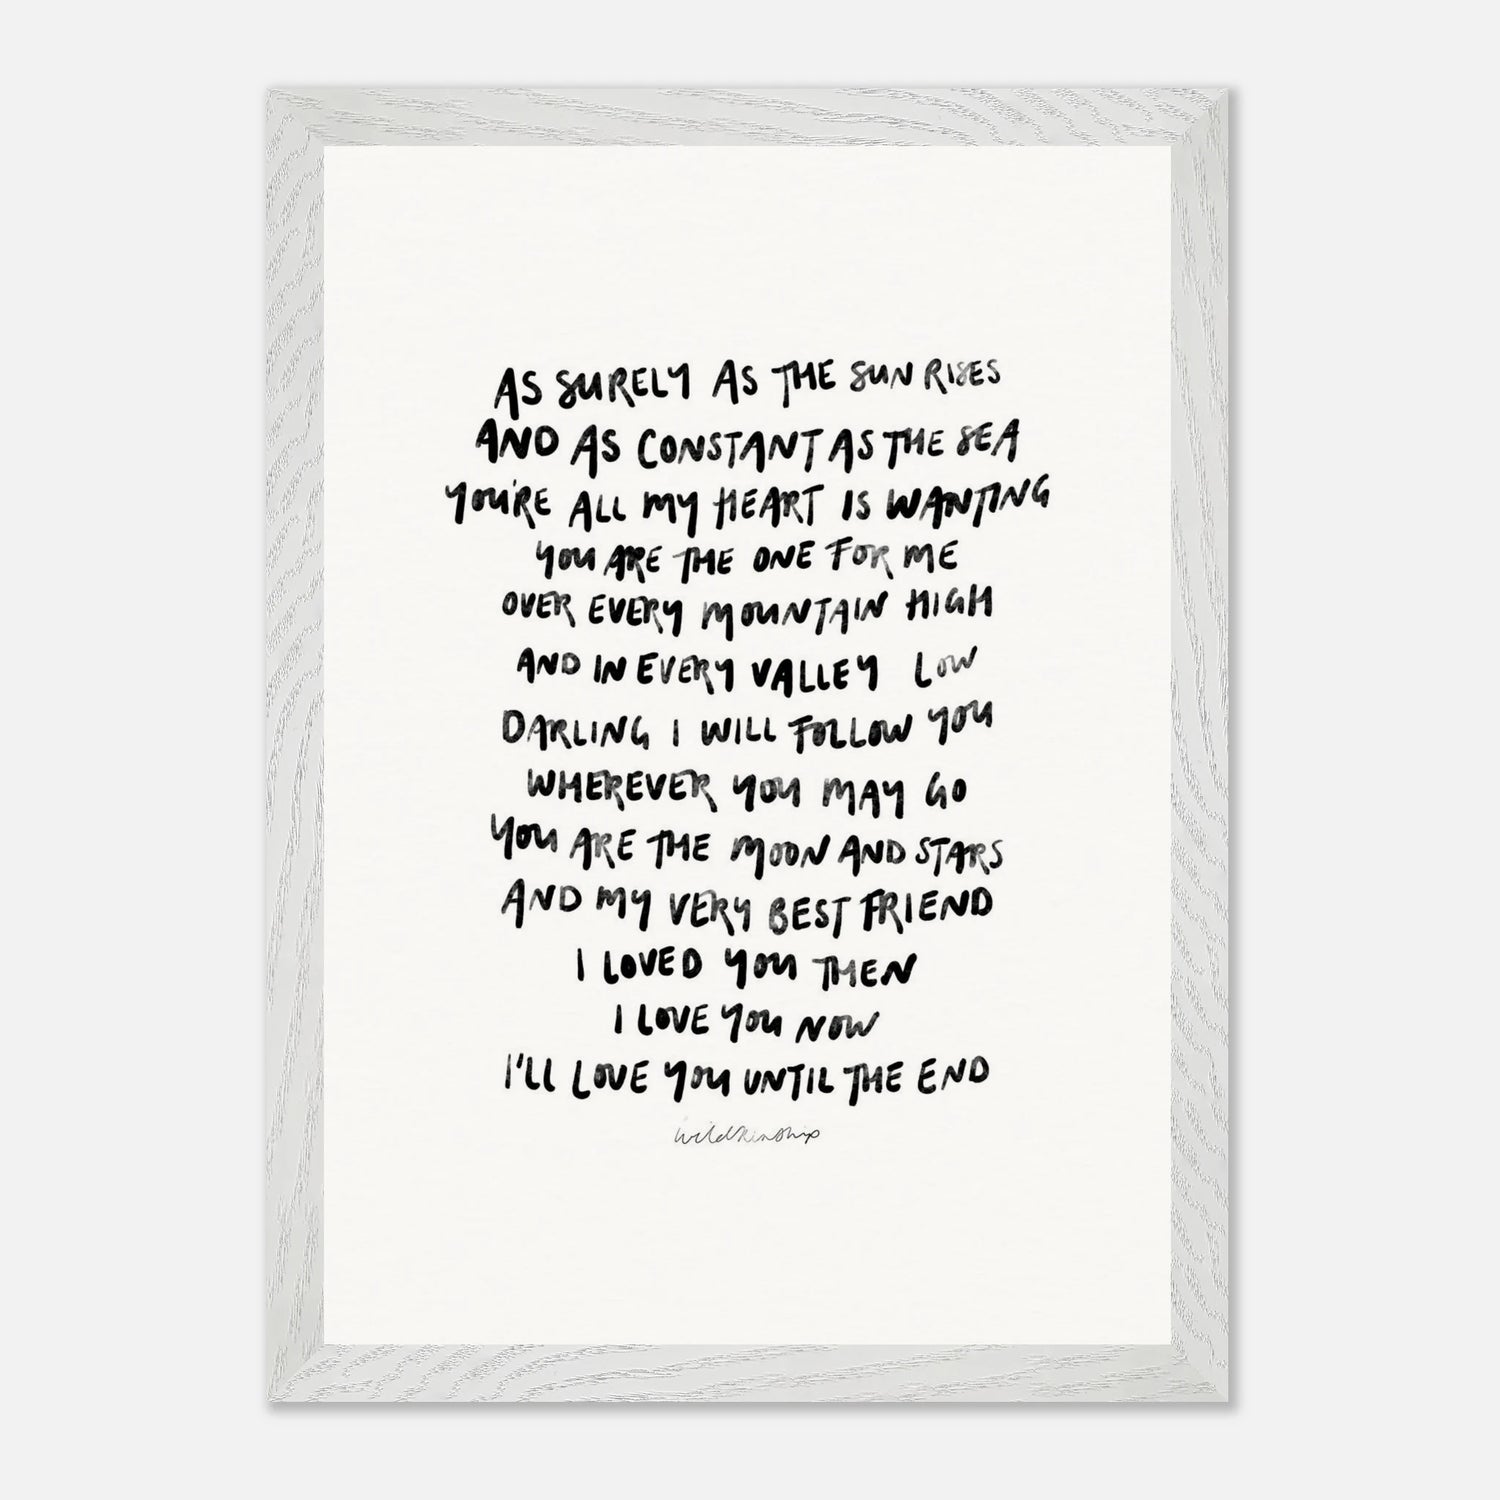 AS SURELY AS THE SUN RISES
AND AS CONSTANT AS THE SEA
YOU'RE ALL MY HEART IS WANTING
YOU ARE THE ONE FOR ME
OVER EVERY MOUNTAIN HIGH
AND IN EVERY VALLEY LOW
DARLING I WILL FOLLOW YOU
WHEREVER YOU MAY GO
YOU ARE THE MOON AND STARS
AND MY VERY BEST FRIEND
I LOVED YOU THEN
I LOVE YOU NOW
I'LL LOVE YOU UNTIL THE END
wildkinship